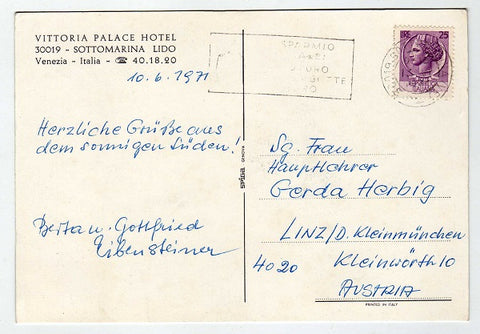 VITTORIA PALACE HOTEL
30019 - SOTTOMARINA LIDO
Venezia - Italia - ☎ 40.18.20
10.6.1971
SPARMIO
25
Herzliche Grüße aus
dem sonnigen Süden!
Gottfried
Eibensteiner
spiga GENOVA
Sg. Frau
Hauptlehrer
Gerda Herbig
LINZ/D. Kleinmünchen
Kleinwörth 10
4020
AUSTRIA
PRINTED IN ITALY